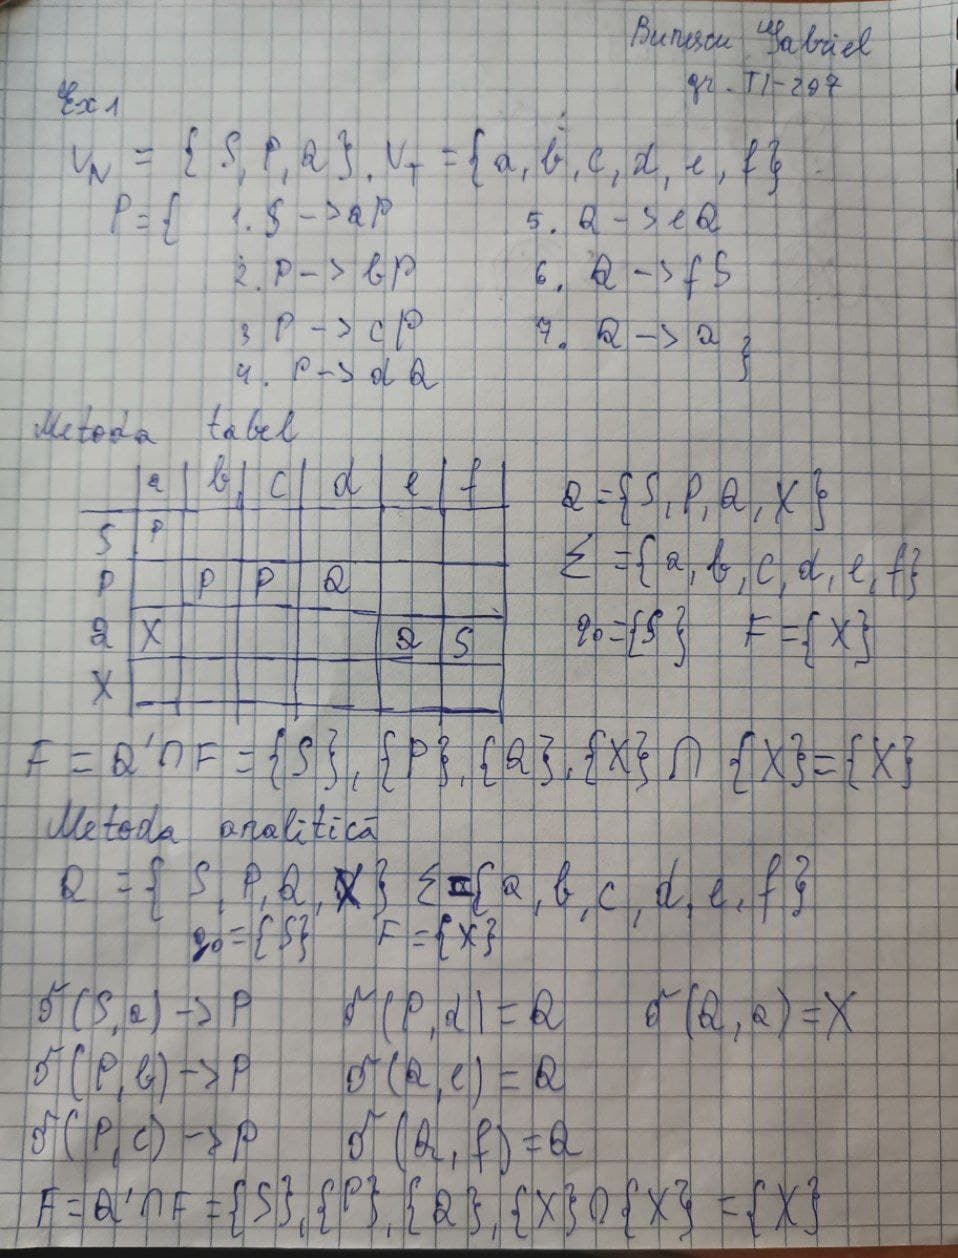 Bunescu Gabriel
gr. TI-207
Ex 1
V_N = { S, P, Q }, V_T = { a, b, c, d, e, f }
P = { 1. S -> aP 5. Q -> eQ
2. P -> bP 6. Q -> fS
3 P -> cP 7. Q -> a }
4. P -> dQ
Metoda tabel
a b c d e f
S P
P P P Q
Q X Q S
X
Q = {S, P, Q, X}
Σ = {a, b, c, d, e, f}
q0 = {S} F = {X}
F = Q' ∩ F = {S}, {P}, {Q}, {X} ∩ {X} = {X}
Metoda analitică
Q = { S, P, Q, X } Σ = { a, b, c, d, e, f }
q0 = {S} F = {X}
δ(S, a) -> P δ(P, d) = Q δ(Q, a) = X
δ(P, b) -> P δ(Q, e) = Q
δ(P, c) -> P δ(Q, f) = Q
F = Q' ∩ F = {S}, {P}, {Q}, {X} ∩ {X} = {X}